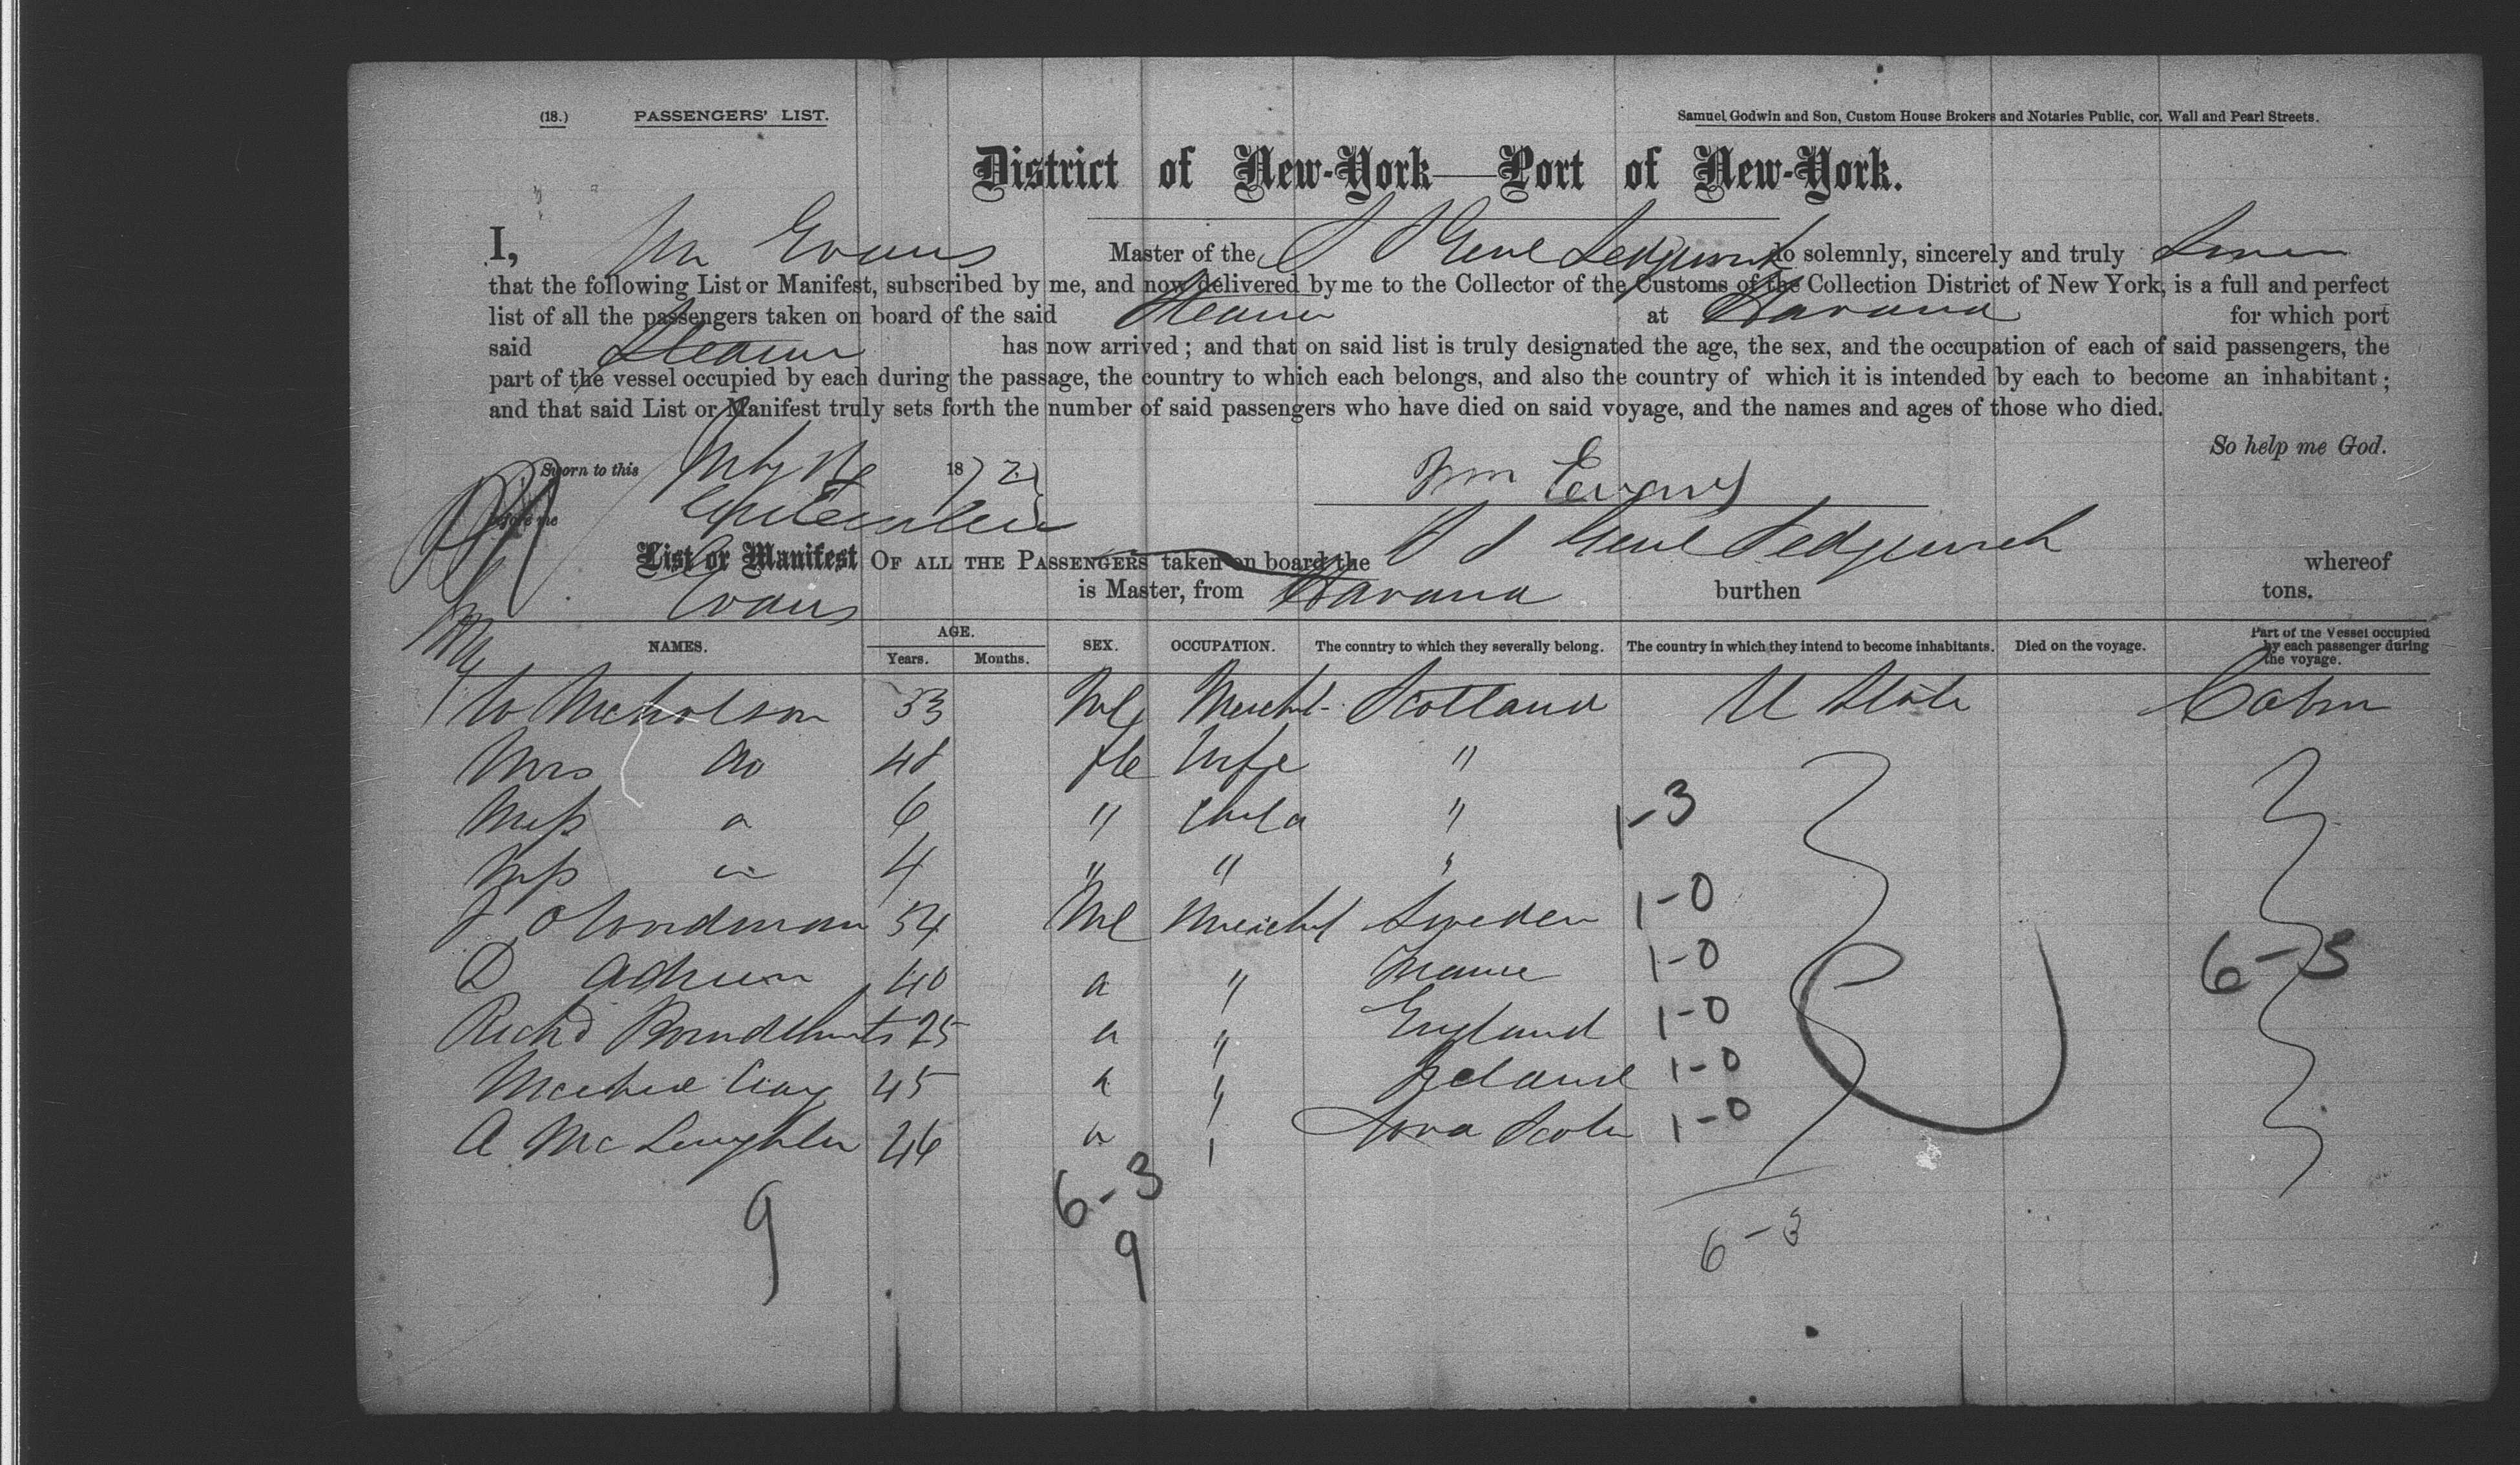 (18.) PASSENGERS' LIST. Samuel Godwin and Son, Custom House Brokers and Notaries Public, cor. Wall and Pearl Streets.
District of New-York—Port of New-York.
I, Wm Evans Master of the S S Genl Sedgwick do solemnly, sincerely and truly Swear
that the following List or Manifest, subscribed by me, and now delivered by me to the Collector of the Customs of the Collection District of New York, is a full and perfect
list of all the passengers taken on board of the said Steamer at Havana for which port
said Steamer has now arrived; and that on said list is truly designated the age, the sex, and the occupation of each of said passengers, the
part of the vessel occupied by each during the passage, the country to which each belongs, and also the country of which it is intended by each to become an inhabitant;
and that said List or Manifest truly sets forth the number of said passengers who have died on said voyage, and the names and ages of those who died.
So help me God.
Sworn to this 1872
before me
Wm Evans
List or Manifest OF ALL THE PASSENGERS taken on board the S S Genl Sedgwick whereof
Evans is Master, from Havana burthen tons.
NAMES. AGE. Years. Months. SEX. OCCUPATION. The country to which they severally belong. The country in which they intend to become inhabitants. Died on the voyage. Part of the Vessel occupied by each passenger during the voyage.
W Nicholson 33 Mle Mercht Scotland U State Cabin
Mrs do 48 fle Wife "
Miss 6 " Child " 1-3
Miss 4 " " "
54 Ml Mercht Sweden 1-0
D 40 " France 1-0 6-3
Richd 25 " England 1-0
45 " Ireland 1-0
A McLaughlin 46 Nova Scotia 1-0
9 6-3 6-3
9